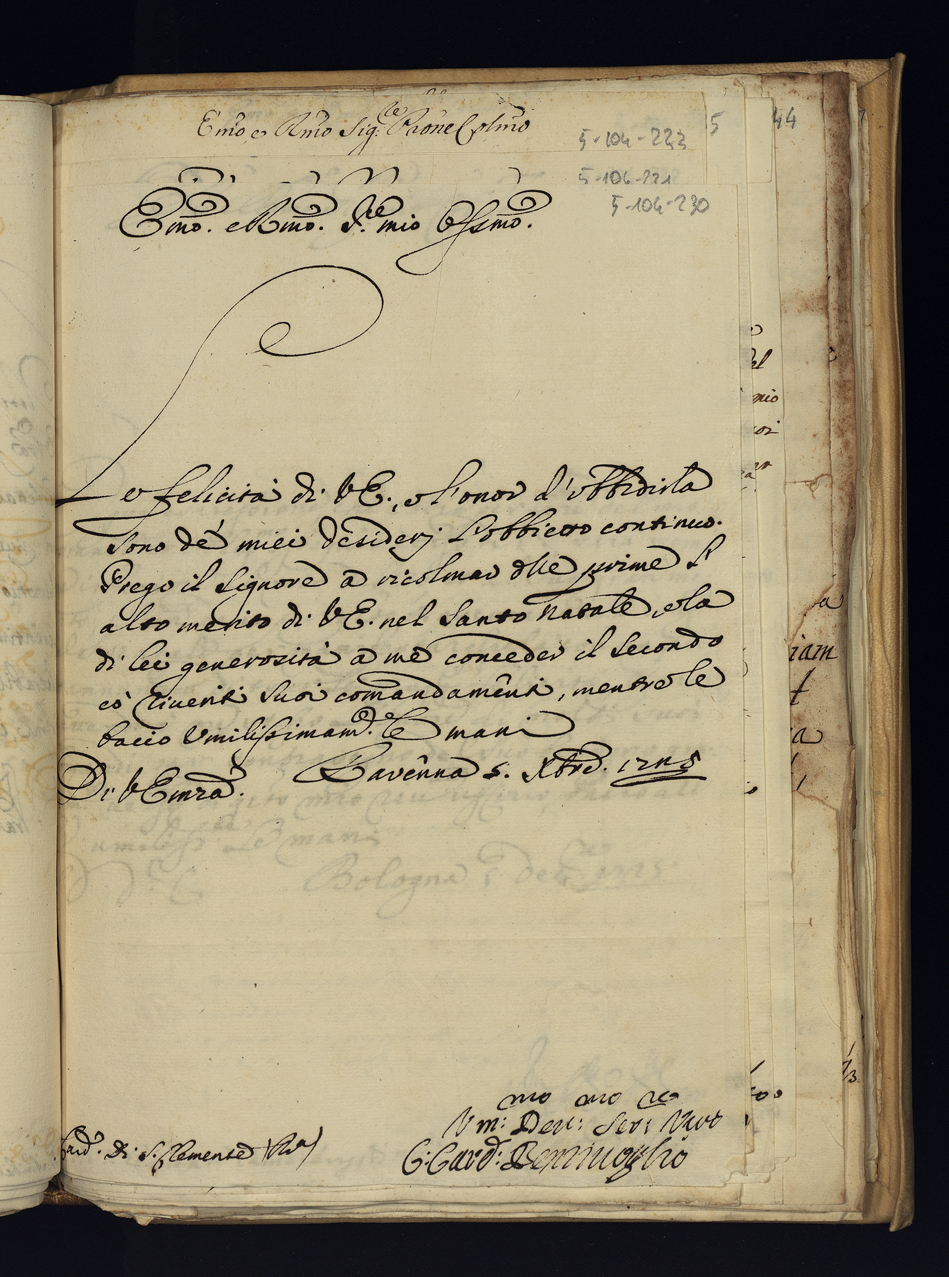 Emo e Rmo Sig:re Prone Colmo
5-104-223
5
44
5-106-221
5-104-230
Emo. e Rmo. S.re mio Ossmo.
Le felicità di VE., e l'onor d'obbidirla
sono de' miei desiderj l'obbietto continuo.
Prego il Signore a ricolmar dlle prime l'
alto merito di VE. nel Santo Natale, e la
di lei generosità a me conceder il secondo
co' riveriti suoi comandamenti, mentre le
bacio Umilissimam.e le mani
Di VEmza. Ravenna 5. Xbre. 1725
Bologna 5 1725
Vmo: Devmo: Serre Vero
Card. Di S. Clemente (Ra)
C: Card: Bentivoglio